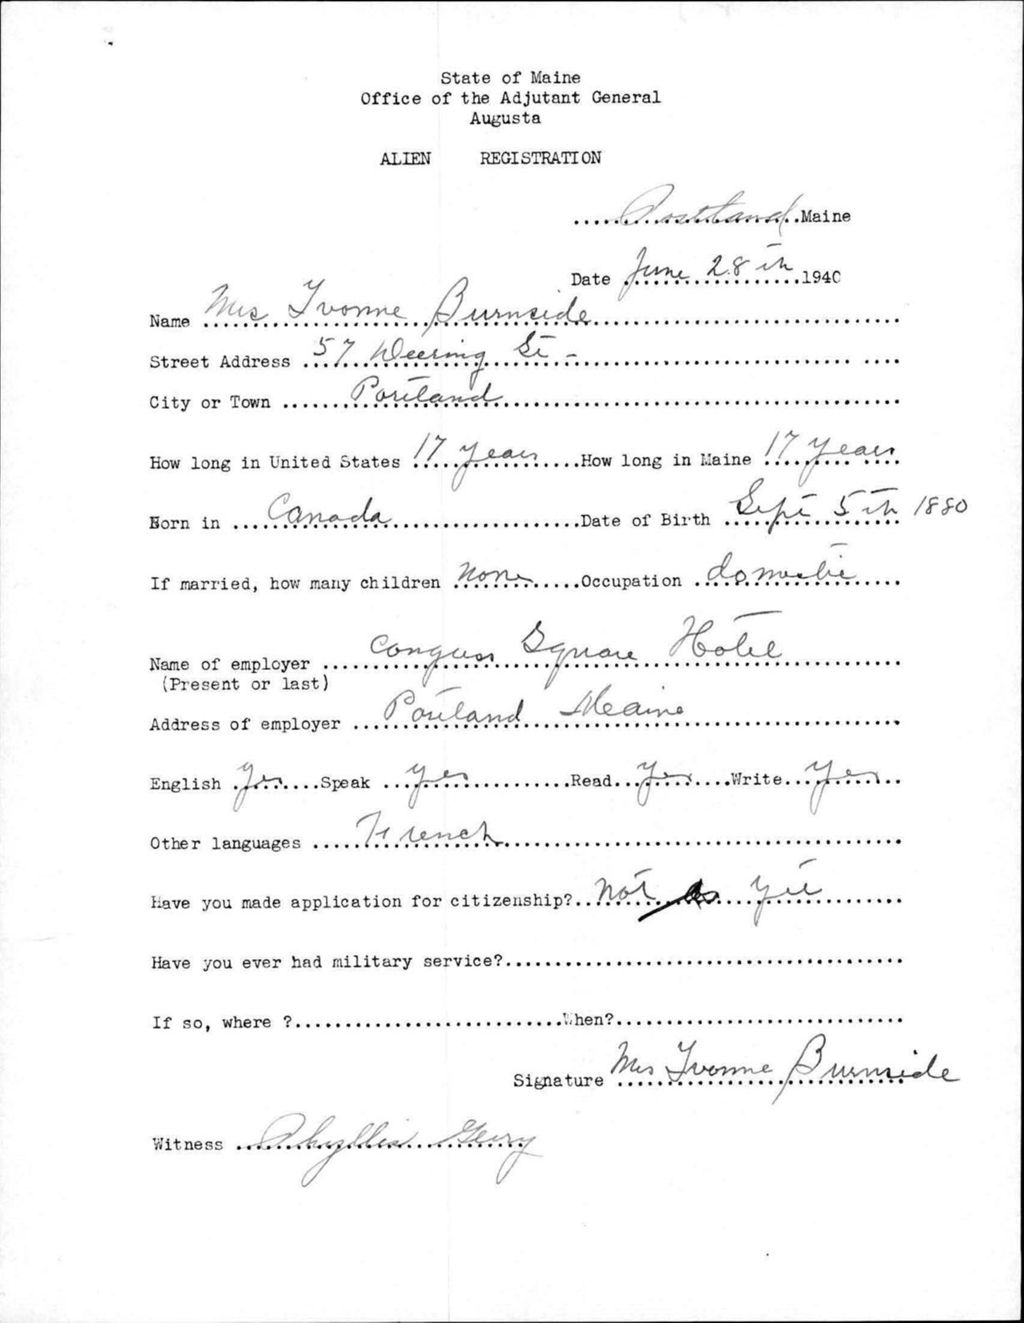 State of Maine
Office of the Adjutant General
Augusta
ALIEN REGISTRATION
Portland Maine
Date June 28th 1940
Name Mrs Yvonne Burnside
Street Address 57 Deering St -
City or Town Portland
How long in United States 17 years How long in Maine 17 years
Born in Canada Date of Birth Sept 5th 1880
If married, how many children none Occupation domestic
Name of employer Congress Square Hotel
(Present or last)
Address of employer Portland Maine
English yes Speak yes Read yes Write yes
Other languages French
Have you made application for citizenship? Not as yet
Have you ever had military service?
If so, where ? When?
Signature Mrs Yvonne Burnside
Witness Phyllis